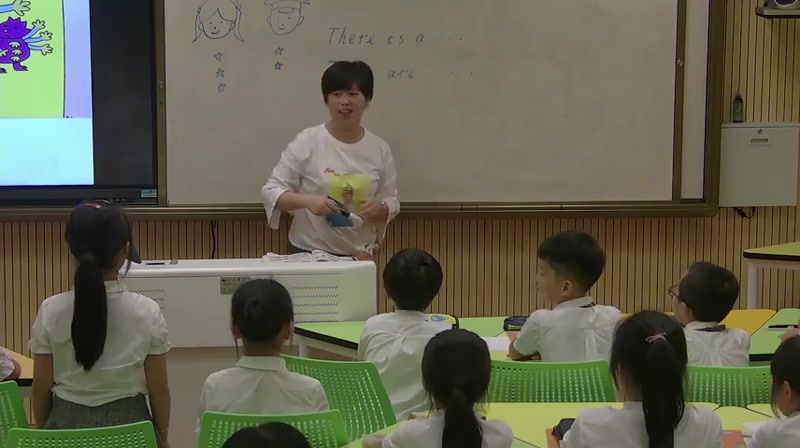 There is a ...
are ....